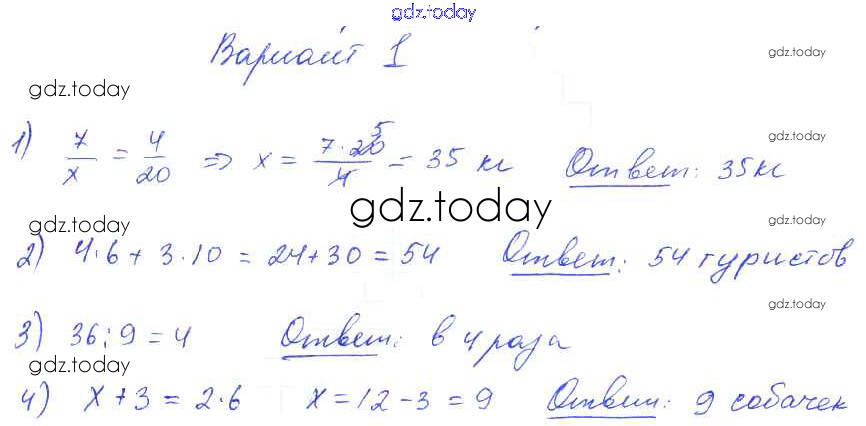 gdz.today
Вариант 1
gdz.today
gdz.today
1) 7/x = 4/20 => x = 7·20/4 5 = 35 кг Ответ: 35 кг
gdz.today
gdz.today
gdz.today
gdz.today
gdz.today
2) 4·6 + 3·10 = 24+30 = 54 Ответ: 54 туристов
gdz.today
3) 36:9 = 4 Ответ: в 4 раза
gdz.today
gdz.today
4) x + 3 = 2·6 x = 12 - 3 = 9 Ответ: 9 собачек